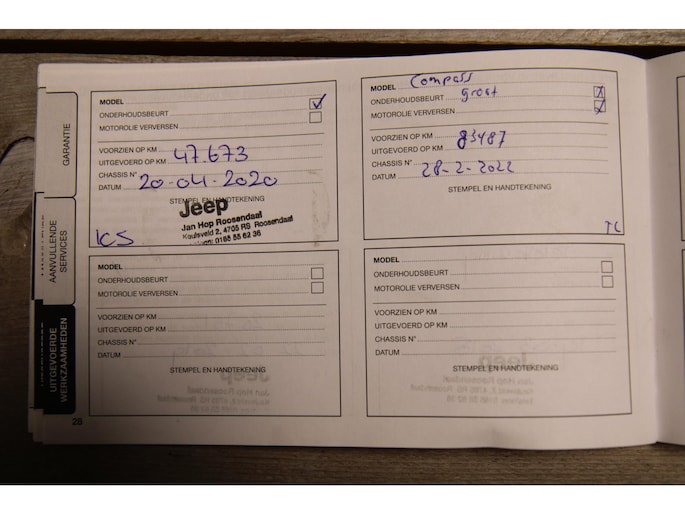 GARANTIE
AANVULLENDE
SERVICES
UITGEVOERDE
WERKZAAMHEDEN
MODEL
ONDERHOUDSBEURT
MOTOROLIE VERVERSEN
VOORZIEN OP KM
UITGEVOERD OP KM 47.673
CHASSIS N°
DATUM 20-04-2020
STEMPEL EN HANDTEKENING
Jeep
Jan Hop Roosendaal
Kaulsveld 2, 4705 RS Roosendaal
0165 55 62 36
KS
MODEL Compass
ONDERHOUDSBEURT groot
MOTOROLIE VERVERSEN
VOORZIEN OP KM
UITGEVOERD OP KM 83487
CHASSIS N°
DATUM 28-2-2022
STEMPEL EN HANDTEKENING
TC
MODEL
ONDERHOUDSBEURT
MOTOROLIE VERVERSEN
VOORZIEN OP KM
UITGEVOERD OP KM
CHASSIS N°
DATUM
STEMPEL EN HANDTEKENING
MODEL
ONDERHOUDSBEURT
MOTOROLIE VERVERSEN
VOORZIEN OP KM
UITGEVOERD OP KM
CHASSIS N°
DATUM
STEMPEL EN HANDTEKENING
26